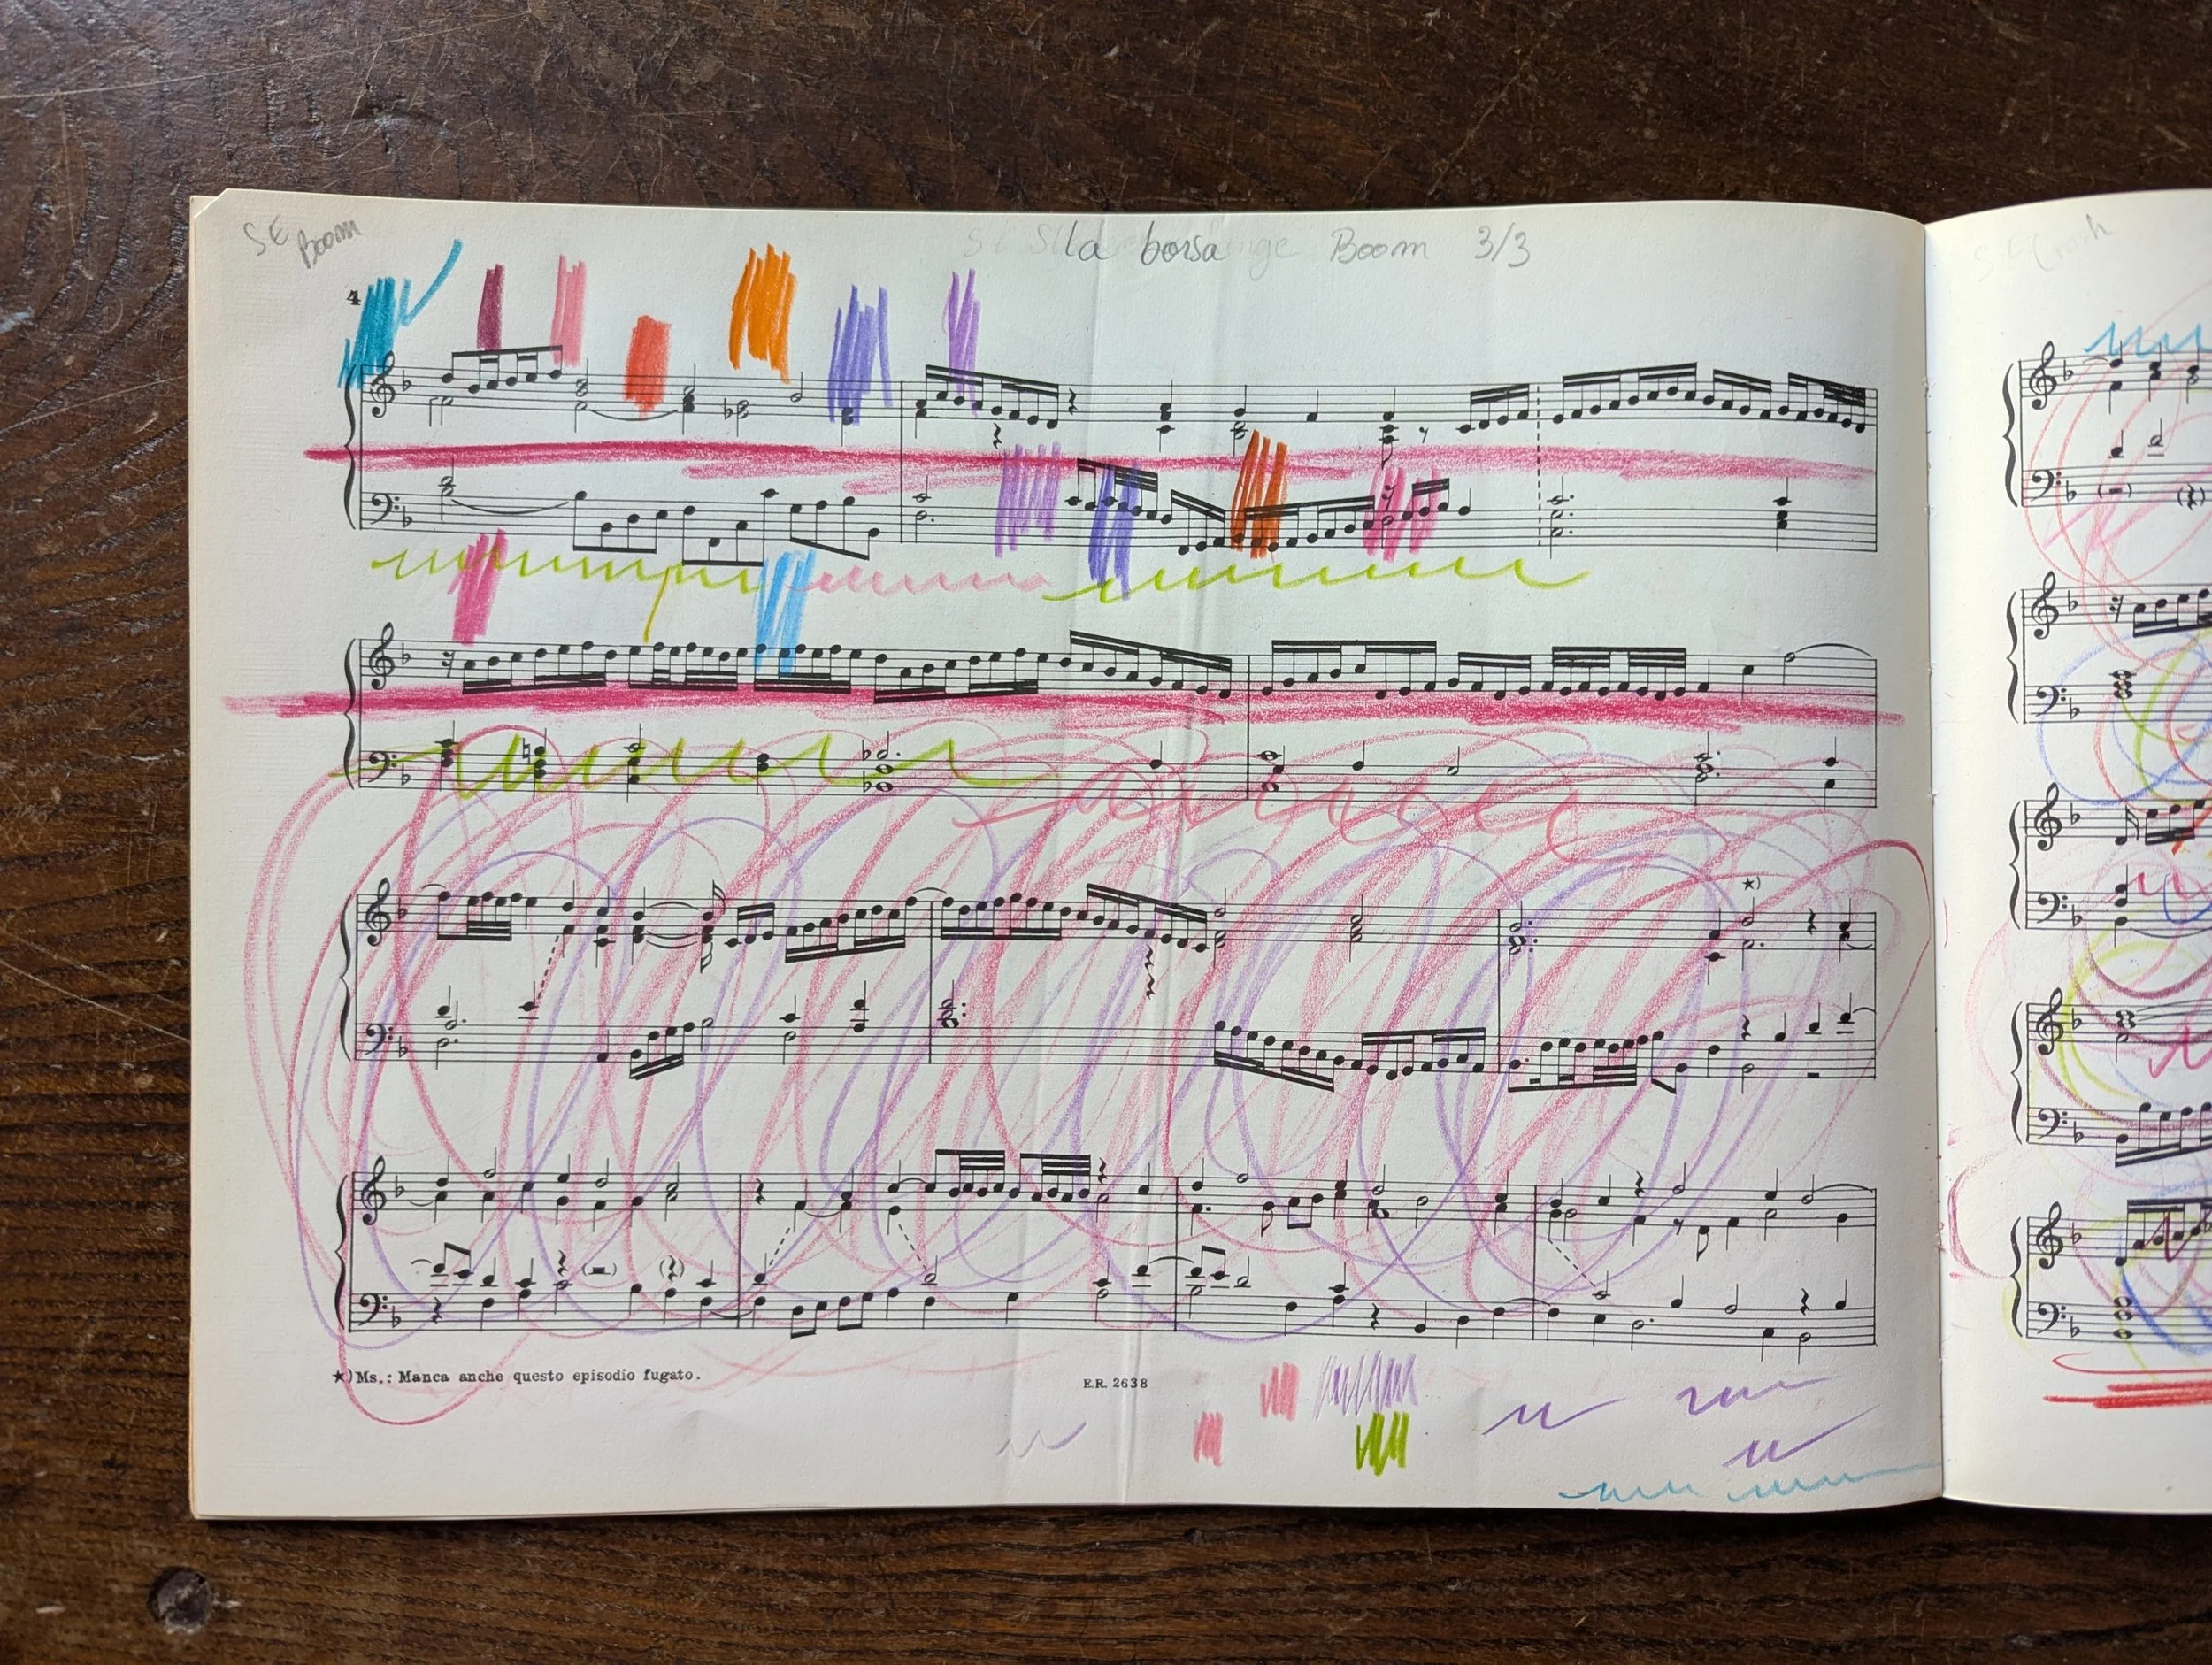 SE
Boom
la borsa Boom 3/3
4
★)
★) Ms.: Manca anche questo episodio fugato.
E.R. 2638
SE Crash